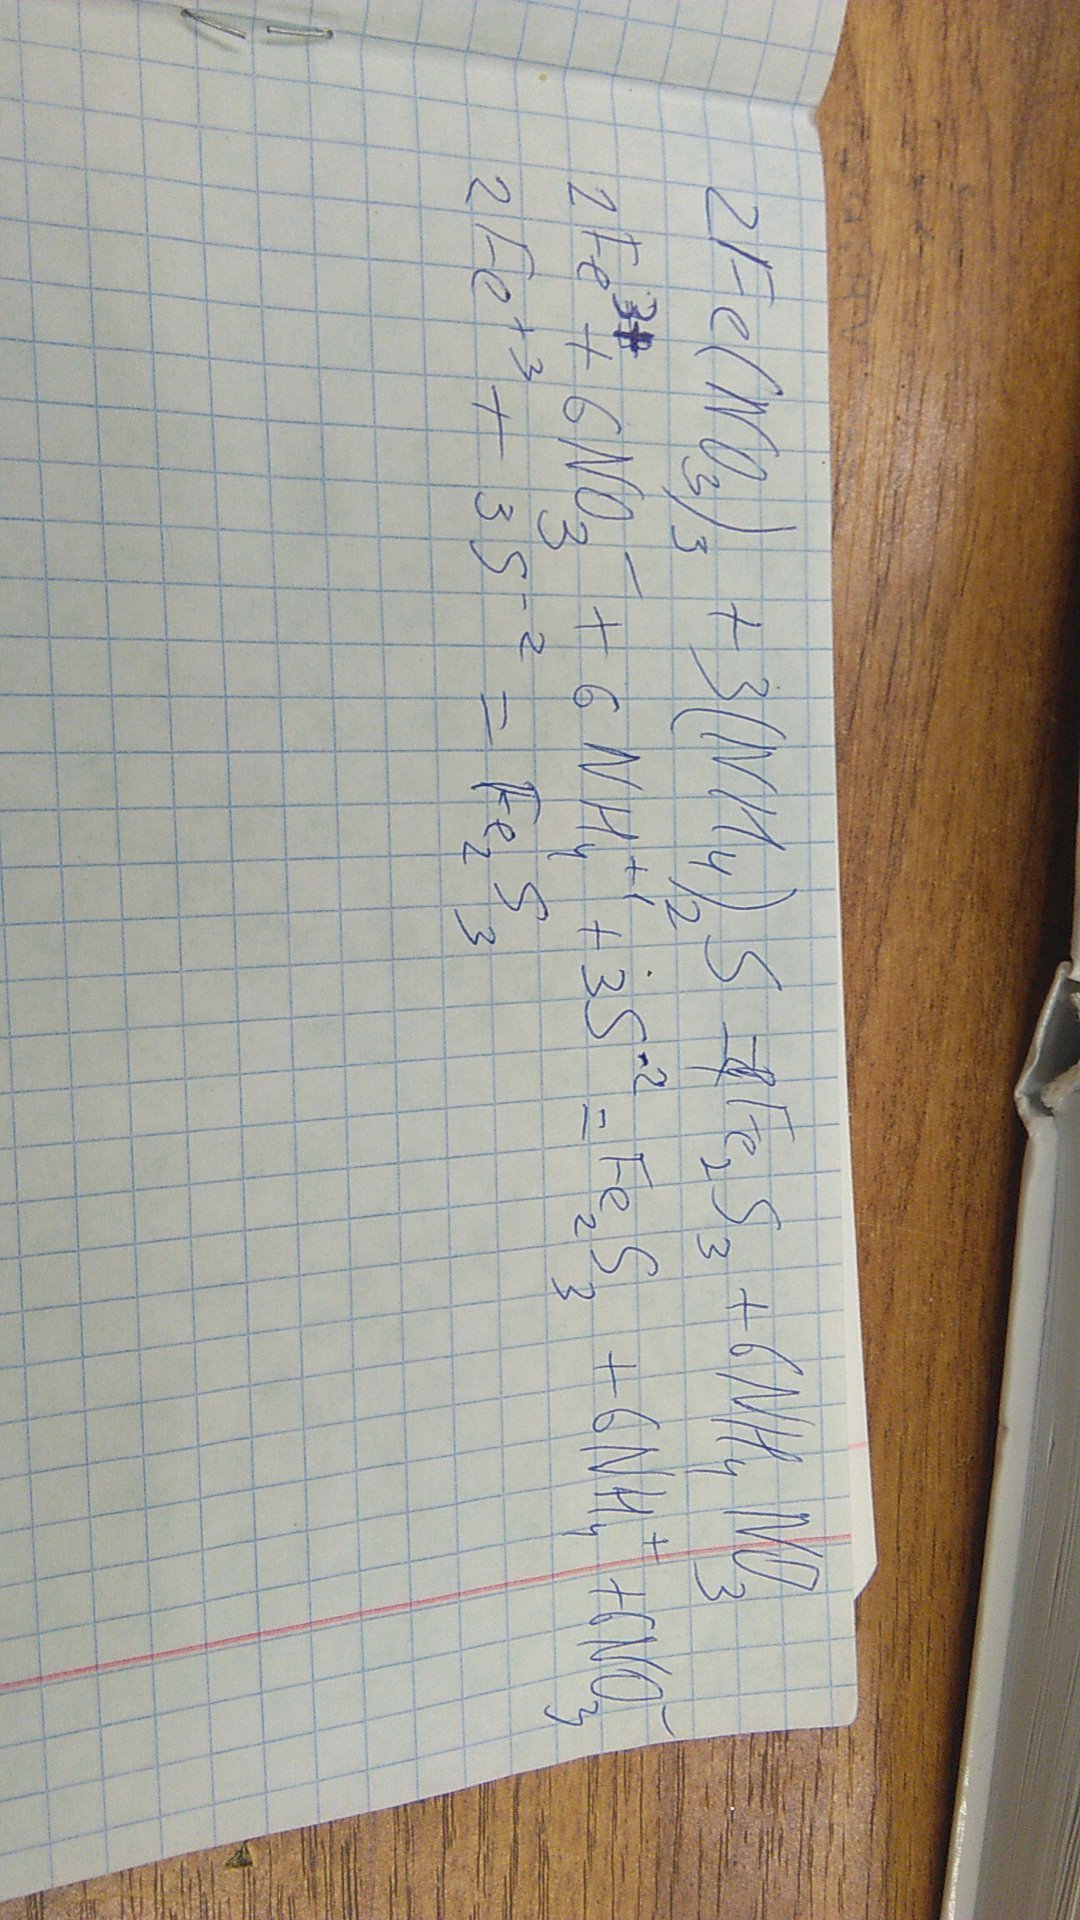 2Fe(NO₃)₃ + 3(NH₄)₂S = Fe₂S₃ + 6NH₄NO₃
2Fe³⁺ + 6NO₃⁻ + 6NH₄⁺¹ + 3S⁻² = Fe₂S₃ + 6NH₄⁺ + 6NO₃⁻
2Fe⁺³ + 3S⁻² = Fe₂S₃